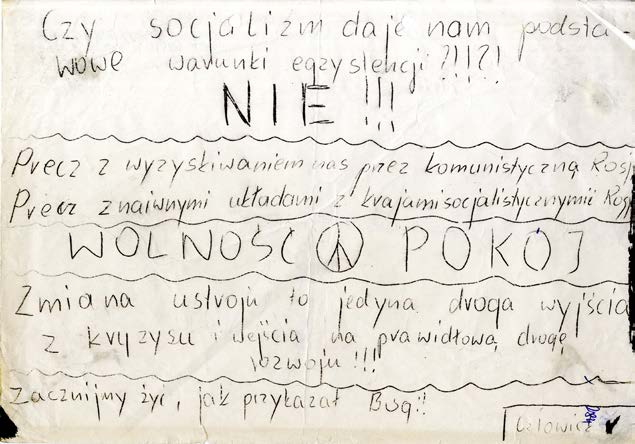 Czy socjalizm daje nam podsta-
wowe warunki egzystencji?!!?!
NIE!!!
Precz z wyzyskiwaniem nas przez komunistyczną Rosj
Precz z naiwnymi układami z krajami socjalistycznymi i Rosj
WOLNOŚĆ POKÓJ
Zmiana ustroju to jedyna droga wyjścia
z kryzysu i wejścia na prawidłową drogę
rozwoju!!!
Zacznijmy żyć, jak przykazał Bóg!!
Człowiek